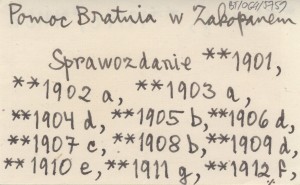 BJ/060/3757
Pomoc Bratnia w Zakopanem
Sprawozdanie **1901,
**1902 a, **1903 a,
**1904 d, **1905 b, **1906 d,
**1907 c, **1908 b, **1909 d,
**1910 e, **1911 g, **1912 f,